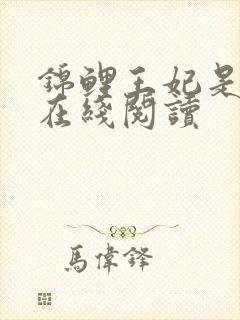 錦鯉王妃是
在綫閱讀
馬偉鋒